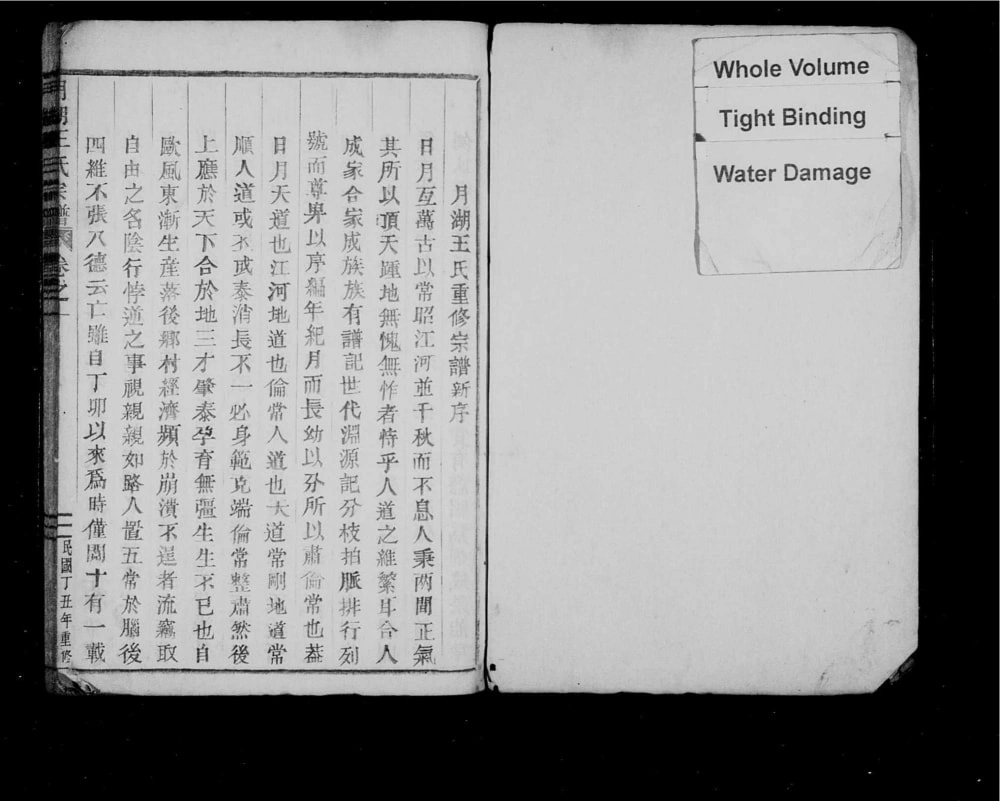 Whole Volume
Tight Binding
Water Damage
月湖王氏重修宗譜新序
日月互萬古以常昭江河並千秋而不息人秉兩間正氣
其所以頂天踵地無愧無怍者恃乎人道之維繫耳合人
成家合家成族族有譜記世代淵源記分枝拍脈排行列
號而尊卑以序編年紀月而長幼以分所以肅倫常也蓋
日月天道也江河地道也倫常人道也天道常剛地道常
順人道或不或泰消長不一必身範克端倫常整肅然後
上應於天下合於地三才肇泰孕育無彊生生不已也自
歐風東漸生産落後鄉村經濟頻於崩潰不逞者流竊取
自由之名陰行悖道之事視親親如路人置五常於腦後
四維不張八德云亡雖自丁卯以來爲時僅閱十有一載
月湖王氏宗譜 卷之一
民國丁丑年重修